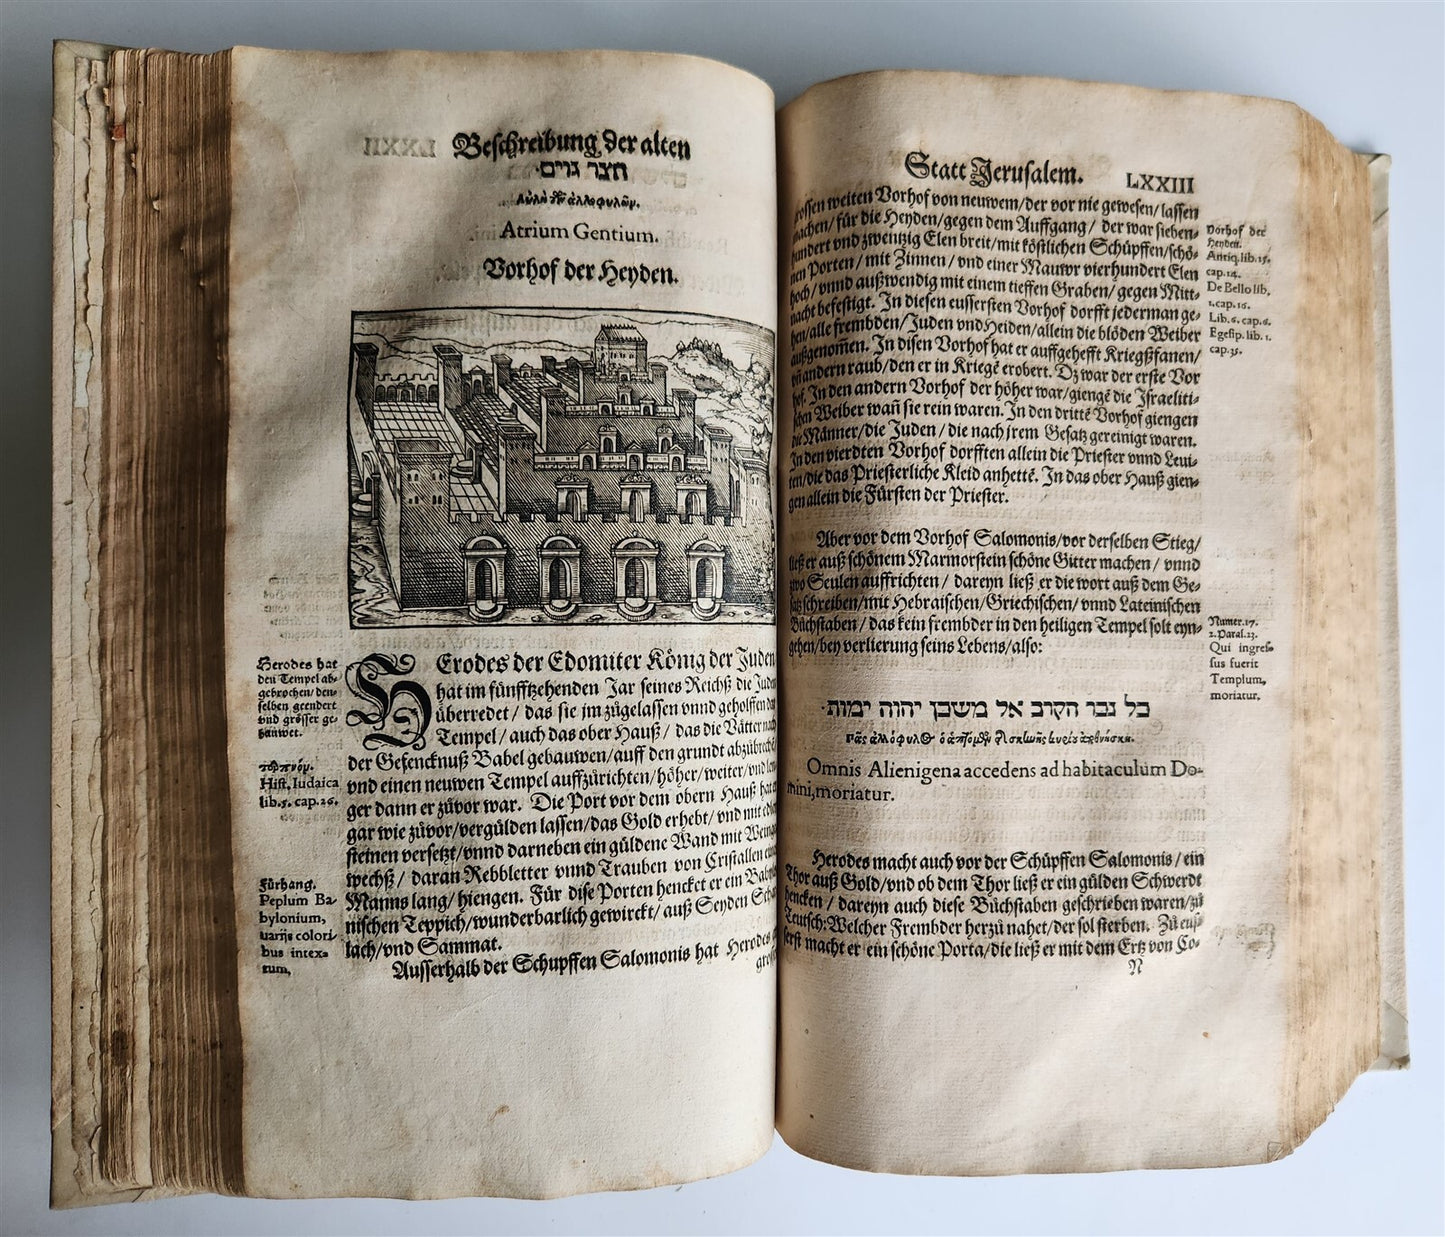 Beschreibung der alten
חצר גוים·
Αὐλὴ τῶν ἀλλοφυλῶν.
Atrium Gentium.
Vorhof der Heyden.
Herodes hat
den Tempel ab-
gebrochen/ den-
selben geendert
vnd grösser ge-
bauwet.
Hist. Iudaica
lib.5. cap.26.
Fürhang.
Peplum Ba-
bylonium,
uarijs colori-
bus intex-
tum,
HErodes der Edomiter König der Juden
hat im fünfftzehenden Jar seines Reichß die Juden
überredet / das sie im zůgelassen vnnd geholffen
Tempel / auch das ober Hauß / das die Vätter nach
der Gefencknuß Babel gebauwen/auff den grundt abzůbreche
vnd einen neuwen Tempel auffzůrichten/höher/weiter/vnd
ger dann er zůvor war. Die Port vor dem obern Hauß hat
gar wie zůvor/vergülden lassen/das Gold erhebt/ vnd mit
steinen versetzt/vnnd darneben ein güldene Wand mit
wechß / daran Rebbletter vnnd Trauben von Cristallen
Manns lang/ hiengen. Für dise Porten hencket er ein
nischen Teppich/wunderbarlich gewirckt/ auß Seyden
lach/vnd Sammat.
Ausserhalb der Schupffen Salomonis hat Herodes
Statt Jerusalem. LXXIII
grossen weiten Vorhof von neuwem/der vor nie gewesen/lassen
machen/für die Heyden/gegen dem Auffgang/ der war sieben-
hundert vnd zwentzig Elen breit/mit köstlichen Schüpffen/schö-
nen Porten / mit Zinnen / vnd einer Mauwr vierhundert Elen
hoch/ vnnd außwendig mit einem tieffen Graben/ gegen Mitt-
nacht befestigt. In diesen eussersten Vorhof dorfft jederman ge-
hen/alle frembden/Juden vnd Heiden/allein die blöden Weiber
außgenom̄en. In disen Vorhof hat er auffgehefft Kriegßfanen/
vñ andern raub/den er in Kriegē erobert. Dz war der erste Vor
hof. In den andern Vorhof der höher war/giengē die Israeliti-
schen Weiber wañ sie rein waren. In den drittē Vorhof giengen
die Männer/die Juden / die nach jrem Gesatz gereinigt waren.
In den vierdten Vorhof dorfften allein die Priester vnnd Leui-
ten/die das Priesterliche Kleid anhettē. In das ober Hauß gien-
gen allein die Fürsten der Priester.
Vorhof der
Heyden.
Antiq. lib. 15.
cap.14.
De Bello lib.
1. cap. 16.
Lib. 6. cap. 6.
Egesip. lib. 1.
cap.35.
Aber vor dem Vorhof Salomonis/vor derselben Stieg/
ließ er auß schönem Marmorstein schöne Gitter machen / vnnd
zwo Seulen auffrichten / dareyn ließ er die wort auß dem Ge-
satz schreiben/mit Hebraischen/Griechischen/ vnnd Lateinischen
Bůchstaben / das kein frembder in den heiligen Tempel solt eyn-
gehen/bey verlierung seins Lebens/also:
Numer.17.
2.Paral.23.
Qui ingres-
sus fuerit
Templum,
moriatur.
כל גבר הקרב אל משכן יהוה ימות·
Omnis Alienigena accedens ad habitaculum Do-
mini, moriatur.
Herodes macht auch vor der Schüpffen Salomonis / ein
Thor auß Gold/vnd ob dem Thor ließ er ein gülden Schwerdt
hencken / dareyn auch diese Bůchstaben geschrieben waren/zů
Teutsch: Welcher Frembder herzů nahet/der sol sterben. Zů euß-
serst macht er ein schöne Porta/die ließ er mit dem Ertz von Co-
N